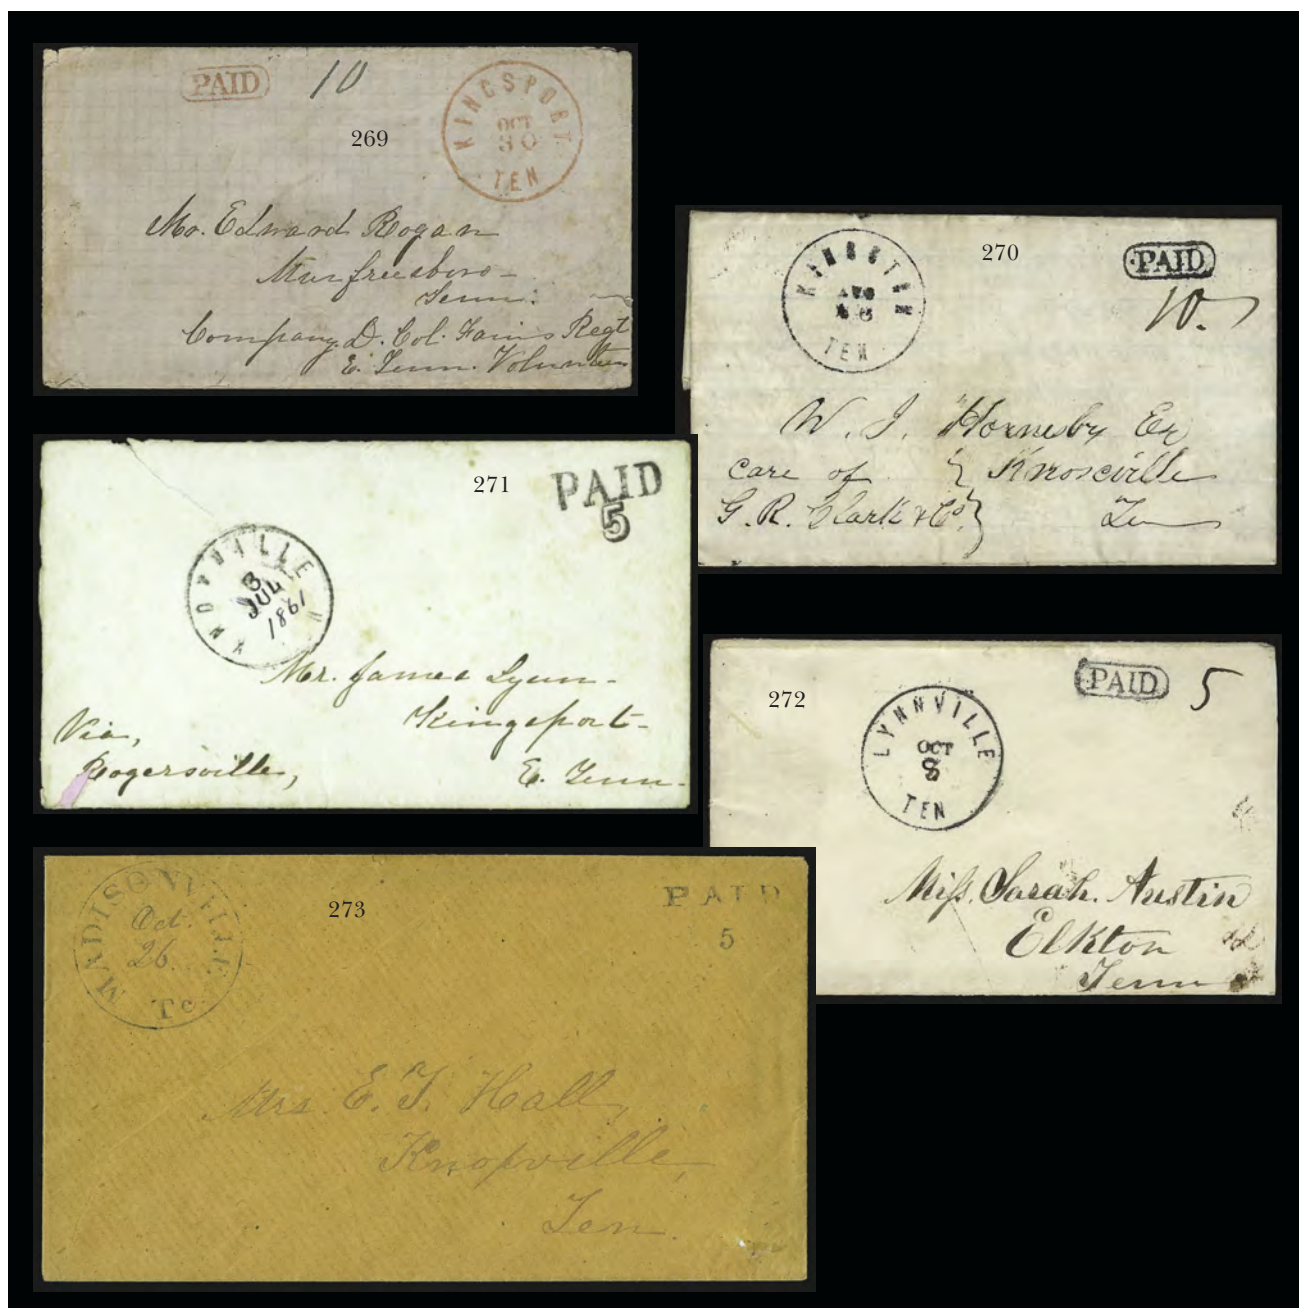 PAID 10
269
KINGSPORT
OCT
30
TEN
Mr. Edward Rogan
Murfreesboro
Tenn.
Company D. Col. Fains Regt
E. Tenn. Volunteers
270
KINGSTON
AUG
TEN
PAID
10.
W. J. Hornesby Esq
Care of } Knoxville
G. R. Clark & Co. } Ten
271
PAID
5
KNOXVILLE
3
JUL
1861
Mr. James Lynn
Kingsport
Via,
Rogersville, E. Tenn.
272
PAID 5
LYNNVILLE
OCT
8
TEN
Miss. Sarah. Austin
Elkton
Tenn
273
MADISONVILLE
Oct.
26
Te
PAID
5
Mrs E. T. Hall,
Knoxville,
Ten.